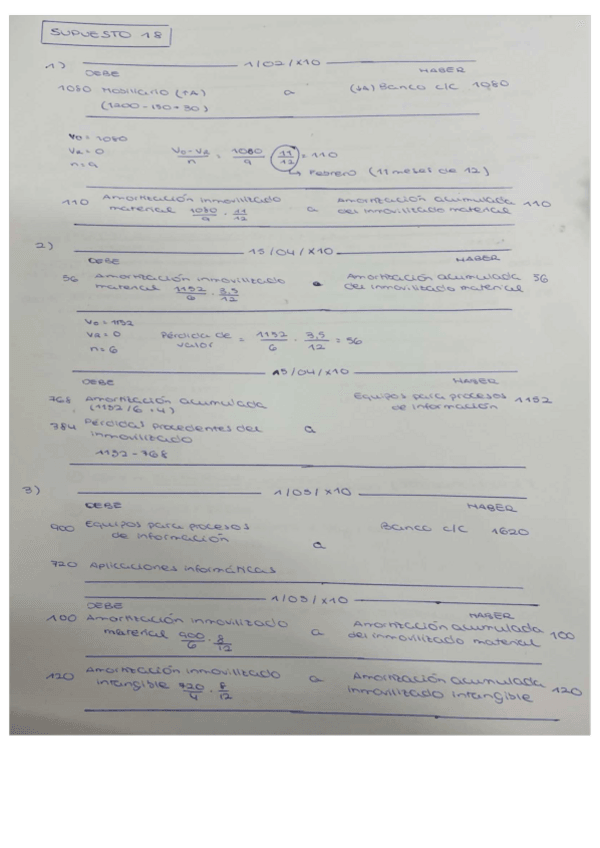 SUPUESTO 18
1) 1/02/x10
DEBE HABER
1080 Mobiliario (+A) a (+A) Banco c/c 1080
(1200-150+30)
V0 = 1080
VR = 0
n = 9
V0 - VR / n = 1080 / 9 · 11 / 12 = 110
↳ Febrero (11 meses de 12)
110 Amortización inmovilizado material 1080/9 · 11/12 a Amortización acumulada del inmovilizado material 110
2) 15/04/x10
DEBE HABER
56 Amortización inmovilizado material 1152/6 · 3,5/12 a Amortización acumulada del inmovilizado material 56
V0 = 1152
VR = 0
n = 6
Pérdida de valor = 1152/6 · 3,5/12 = 56
15/04/x10
DEBE HABER
768 Amortización acumulada (1152/6 · 4) Equipos para procesos de información 1152
784 Pérdidas procedentes del inmovilizado a
1152 - 768
3) 1/05/x10
DEBE HABER
900 Equipos para procesos de información a Banco c/c 1620
720 Aplicaciones informáticas
1/05/x10
DEBE HABER
100 Amortización inmovilizado material 900/6 · 8/12 a Amortización acumulada del inmovilizado material 100
120 Amortización inmovilizado intangible 720/4 · 8/12 a Amortización acumulada inmovilizado intangible 120